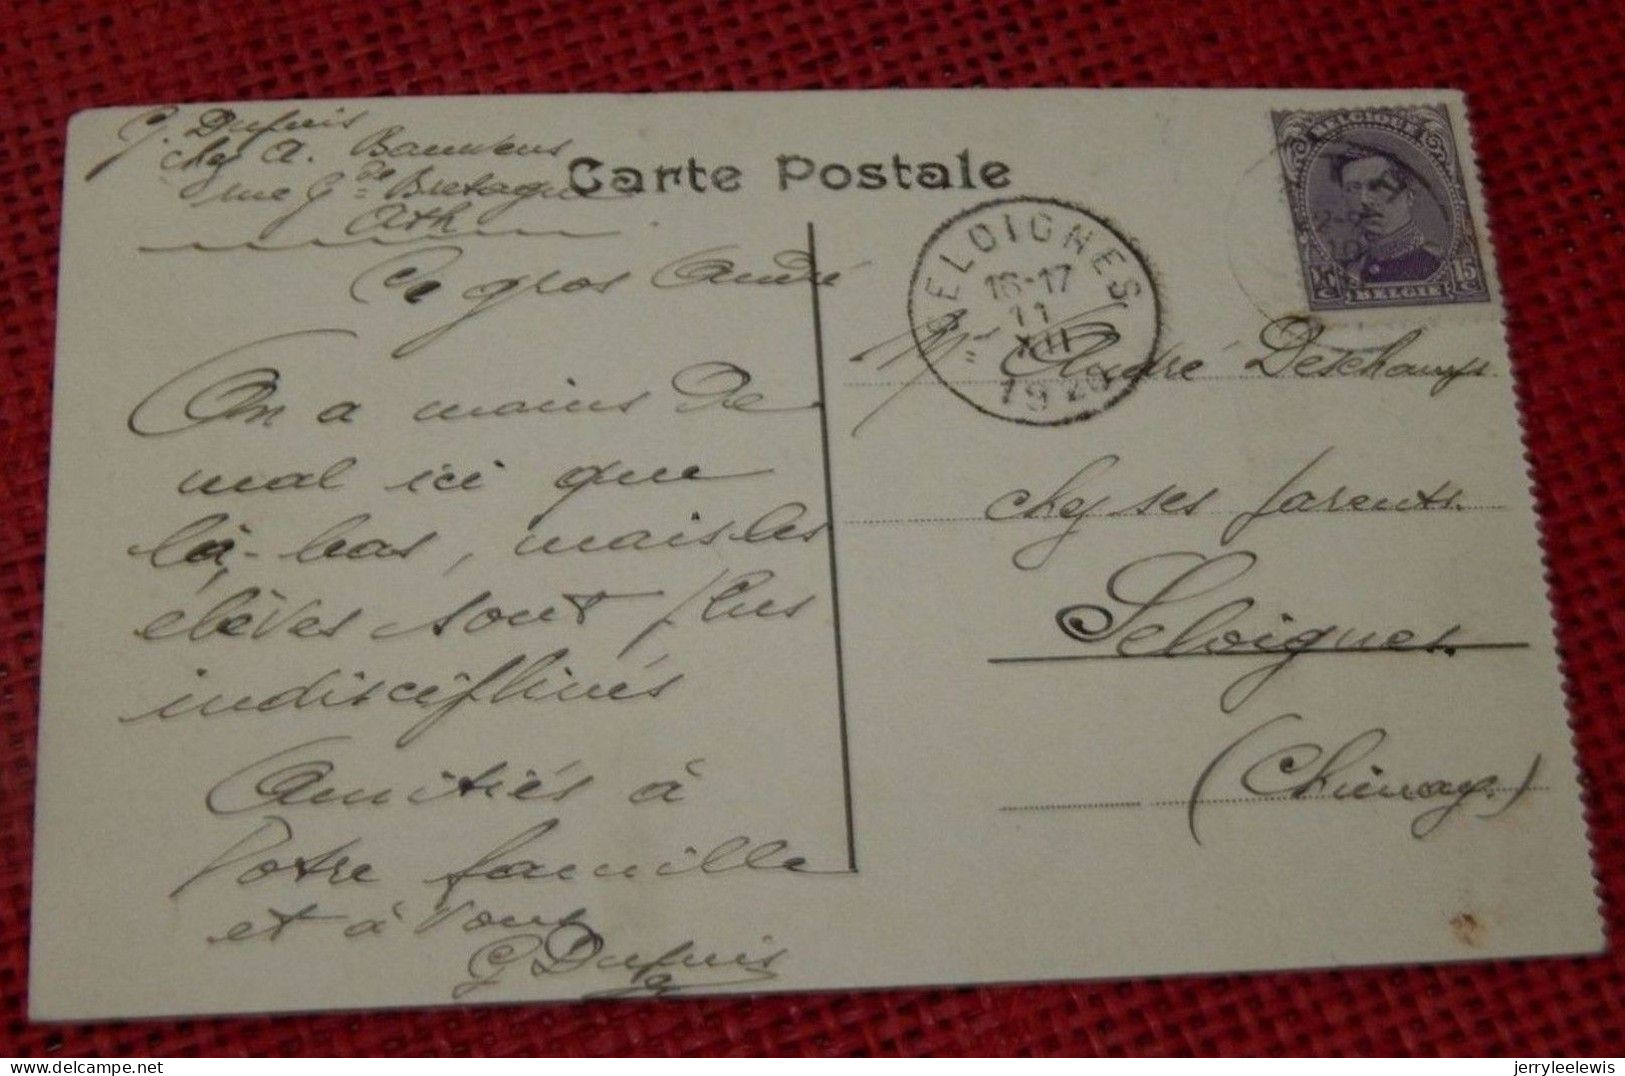 G. Dupuis
chez A. Bauwens
rue Gde Bretagne
Ath
Carte Postale
Ce gros André
On a moins de
mal ici que
là-bas, mais les
elèves sont plus
indisciplinés
Amitiés à
Votre famille
et à vous
G Dupuis
SELOIGNES
16-17
11
XII
1920
BELGIQUE
15 C
BELGIE
Mr André Deschamps
chez ses parents.
Seloignes.
(Chimay.)
jerryleelewis